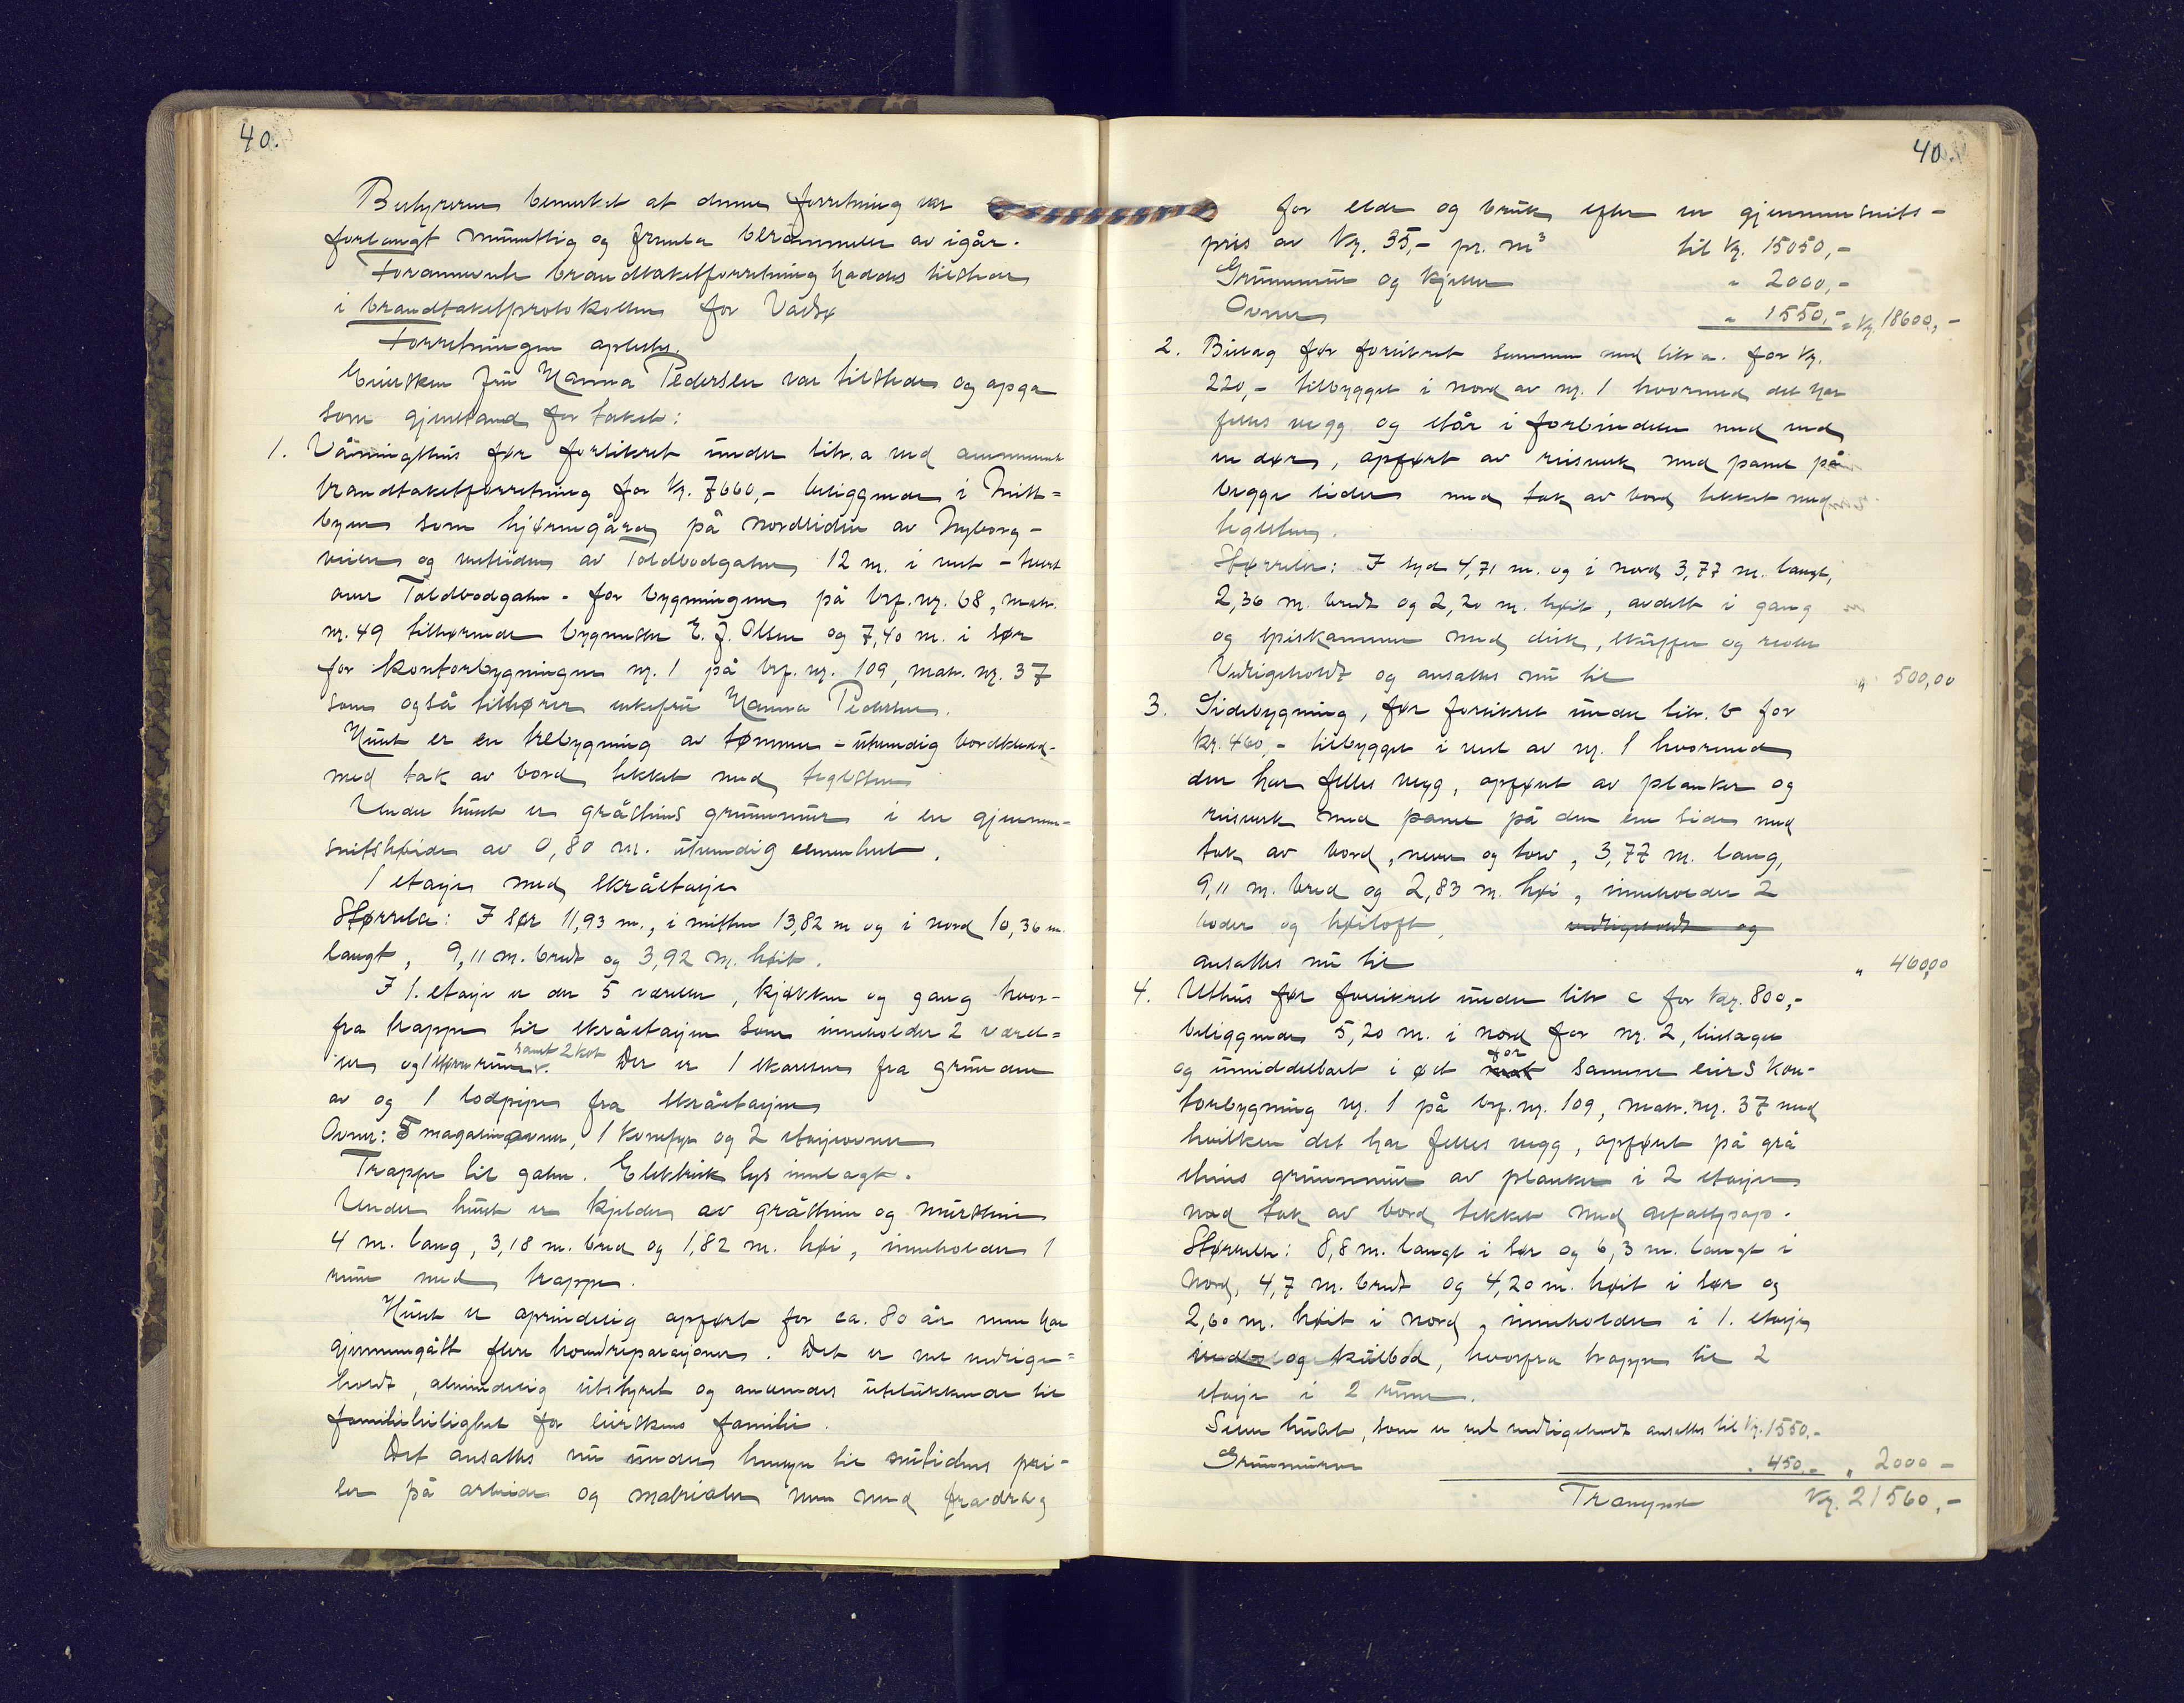 40.
Bestyreren bemerket at denne forretning var
forlangt muntlig og frembar berammelse av igår.
Forannevnte brandtakstforretning haddes tilstede
i brandtakstprotokollen for Vadsø
Forretningen oplestes.
Eiersken fru Hanna Pedersen var tilstede og opga
som gjenstand for takst:
1. Våningshus før forsikret under litr. a ved anmeldte
brandtakstforretning for kr. 7660,- beliggende i Midt-
byen som hjørnegård på nordsiden av Nyborg-
veien og vestsiden av Toldbodgaten 12 m. i vest - tvert
over Toldbodgaten - for bygningen på brf. nr. 68, matr.
nr. 49 tilhørende bygmester E. J. Olsen og 7,40 m. i sør
for kontorbygningen nr. 1 på brf. nr. 109, matr. nr. 37
som også tilhører enkefru Hanna Pedersen.
Huset er en trebygning av tømmer - utvendig bordkledd -
med tak av bord tekket med teglsten
Under huset er gråstens grunnmur i en gjennem-
snitshøide av 0,80 m. utvendig sementert.
1 etasje med skråetasje
Størrelse: I sør 11,93 m., i midten 13,82 m og i nord 10,36 m.
langt, 9,11 m. bredt og 3,92 m. høit.
I 1. etasje er der 5 værelser, kjøkken og gang hvor-
fra trappe til skråetasjen som inneholder 2 værel-
ser og 1 større rum samt 2 kot. Der er 1 skorsten fra grunden
av og 1 lodpipe fra skråetasjen
Ovner: 5 magasinovner, 1 komfyr og 2 etasjeovner
Trappe til gaten. Elektrisk lys innlagt.
Under huset er kjelder av gråsten og mursten
4 m. lang, 3,18 m. bred og 1,82 m. høi, inneholder 1
rum med trappe.
Huset er oprindelig opført for ca. 80 år men har
gjennemgått flere hovedreparasjoner. Det er vel vedlige-
holdt, almindelig utstyret og anvendes utelukkende til
familieleilighet for eierskens familie.
Det ansettes nu under hensyn til nutidens pri-
ser på arbeide og materialer men med fradrag
40.
for elde og bruk efter en gjennemsnits-
pris av kr. 35,- pr. m³ til kr. 15050,-
Grunnmur og kjeller " 2000,-
Ovner " 1550,- = kr. 18600,-
2. Bislag før forsikret sammen med litr a. for kr.
220,- tilbygget i nord av nr. 1 hvormed det har
felles vegg og står i forbindelse med ved
en dør, opført av reisverk med panel på
begge sider med tak av bord tekket med
teglsten.
Størrelse: I syd 4,71 m. og i nord 3,77 m. langt,
2,36 m. bredt og 2,20 m. høit, avdelt i gang
og spiskammer med disk, skuffer og reoler
Vedligeholdt og ansettes nu til " 500,00
3. Sidebygning, før forsikret under litr. b for
kr. 460,- tilbygget i vest av nr. 1 hvormed
den har felles vegg, opført av planker og
reisverk med panel på den ene side med
tak av bord, never og torv, 3,77 m. lang,
9,11 m. bred og 2,83 m. høi, inneholder 2
boder og høiloft, vedligeholdt og
ansettes nu til " 460,00
4. Uthus før forsikret under litr c for kr. 800,-
beliggende 5,20 m. i nord for nr. 2, bislaget
og umiddelbart i øst for samme eiers kon-
torbygning nr. 1 på brf. nr. 109, matr. nr. 37 med
hvilken det har felles vegg, opført på grå
stens grunnmur av planker i 2 etasjer
med tak av bord tekket med asfaltpapp.
Størrelse: 8,8 m. langt i sør og 6,3 m. langt i
nord, 4,7 m. bredt og 4,20 m. høit i sør og
2,60 m. høit i nord, inneholder i 1. etasje
vedbod og kulbod, hvorfra trappe til 2
etasje i 2 rum.
Selve huset, som er vel vedligeholdt ansettes til kr. 1550,-
Grunnmuren " 450,- " 2000 -
Transport kr. 21560,-